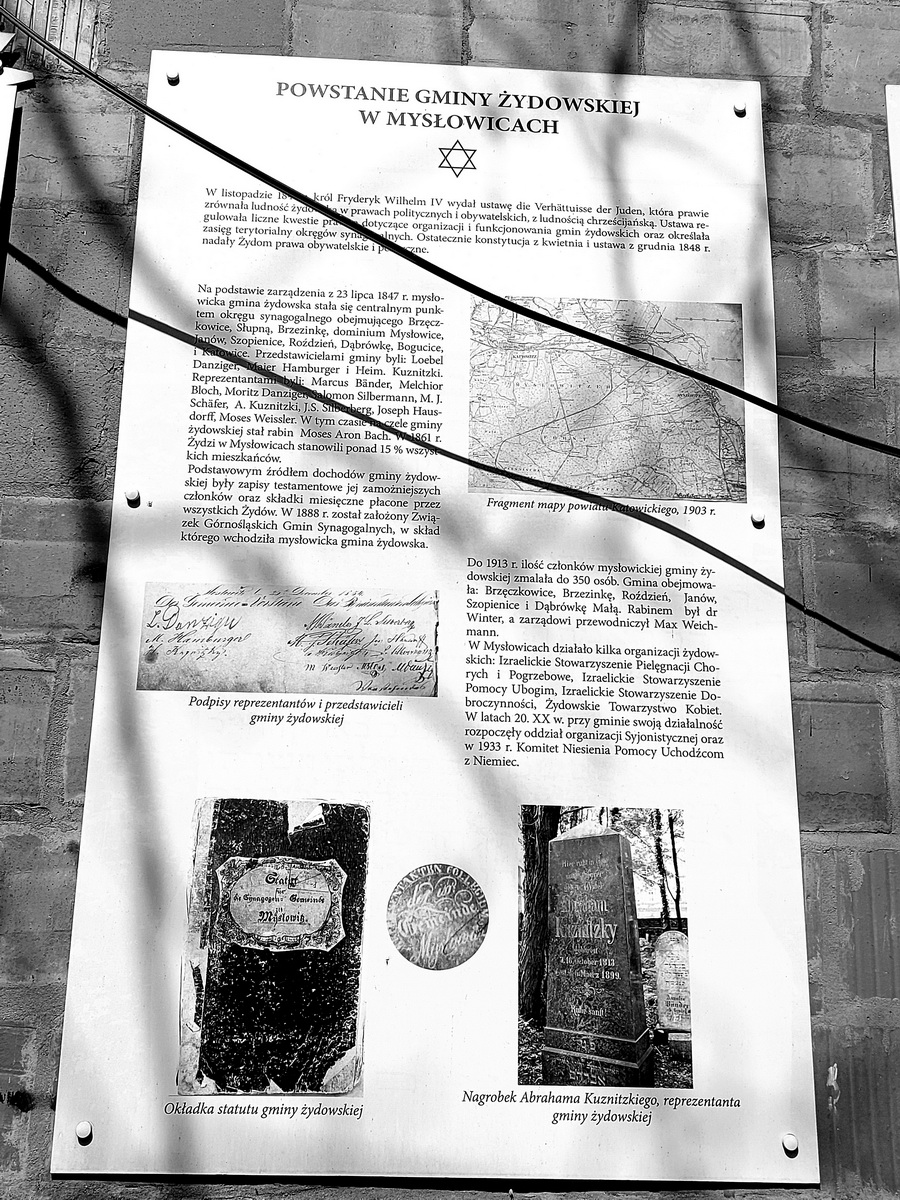 POWSTANIE GMINY ŻYDOWSKIEJ
W MYSŁOWICACH
W listopadzie król Fryderyk Wilhelm IV wydał ustawę die Verhättuisse der Juden, która prawie
zrównała ludność żydowską w prawach politycznych i obywatelskich, z ludnością chrześcijańską. Ustawa re-
gulowała liczne kwestie prawne dotyczące organizacji i funkcjonowania gmin żydowskich oraz określała
zasięg terytorialny okręgów synagogalnych. Ostatecznie konstytucja z kwietnia i ustawa z grudnia 1848 r.
nadały Żydom prawa obywatelskie i polityczne.
Na podstawie zarządzenia z 23 lipca 1847 r. mysło-
wicka gmina żydowska stała się centralnym punk-
tem okręgu synagogalnego obejmującego Brzęcz-
kowice, Słupną, Brzezinkę, dominium Mysłowice,
Janów, Szopienice, Roździeń, Dąbrówkę, Bogucice,
i Katowice. Przedstawicielami gminy byli: Loebel
Danziger, Maier Hamburger i Heim. Kuznitzki.
Reprezentantami byli: Marcus Bänder, Melchior
Bloch, Moritz Danziger, Salomon Silbermann, M. J.
Schäfer, A. Kuznitzki, J.S. Silberberg, Joseph Haus-
dorff, Moses Weissler. W tym czasie na czele gminy
żydowskiej stał rabin Moses Aron Bach. W 1861 r.
Żydzi w Mysłowicach stanowili ponad 15 % wszyst-
kich mieszkańców.
Podstawowym źródłem dochodów gminy żydow-
skiej były zapisy testamentowe jej zamożniejszych
członków oraz składki miesięczne płacone przez
wszystkich Żydów. W 1888 r. został założony Zwią-
zek Górnośląskich Gmin Synagogalnych, w skład
którego wchodziła mysłowicka gmina żydowska.
Fragment mapy powiatu Katowickiego, 1903 r.
Do 1913 r. ilość członków mysłowickiej gminy ży-
dowskiej zmalała do 350 osób. Gmina obejmowa-
ła: Brzęczkowice, Brzezinkę, Roździeń, Janów,
Szopienice i Dąbrówkę Małą. Rabinem był dr
Winter, a zarządowi przewodniczył Max Weich-
mann.
W Mysłowicach działało kilka organizacji żydow-
skich: Izraelickie Stowarzyszenie Pielęgnacji Cho-
rych i Pogrzebowe, Izraelickie Stowarzyszenie
Pomocy Ubogim, Izraelickie Stowarzyszenie Do-
broczynności, Żydowskie Towarzystwo Kobiet.
W latach 20. XX w. przy gminie swoją działalność
rozpoczęły oddział organizacji Syjonistycznej oraz
w 1933 r. Komitet Niesienia Pomocy Uchodźcom
z Niemiec.
M. Hamburger
Podpisy reprezentantów i przedstawicieli
gminy żydowskiej
Statut
für
die Synagogen-Gemeinde
Myslowitz.
Okładka statutu gminy żydowskiej
Gemeinde
Hier ruht in Gott
Abraham
Kuznitzky
2. October 1813
März 1899.
Nagrobek Abrahama Kuznitzkiego, reprezentanta
gminy żydowskiej